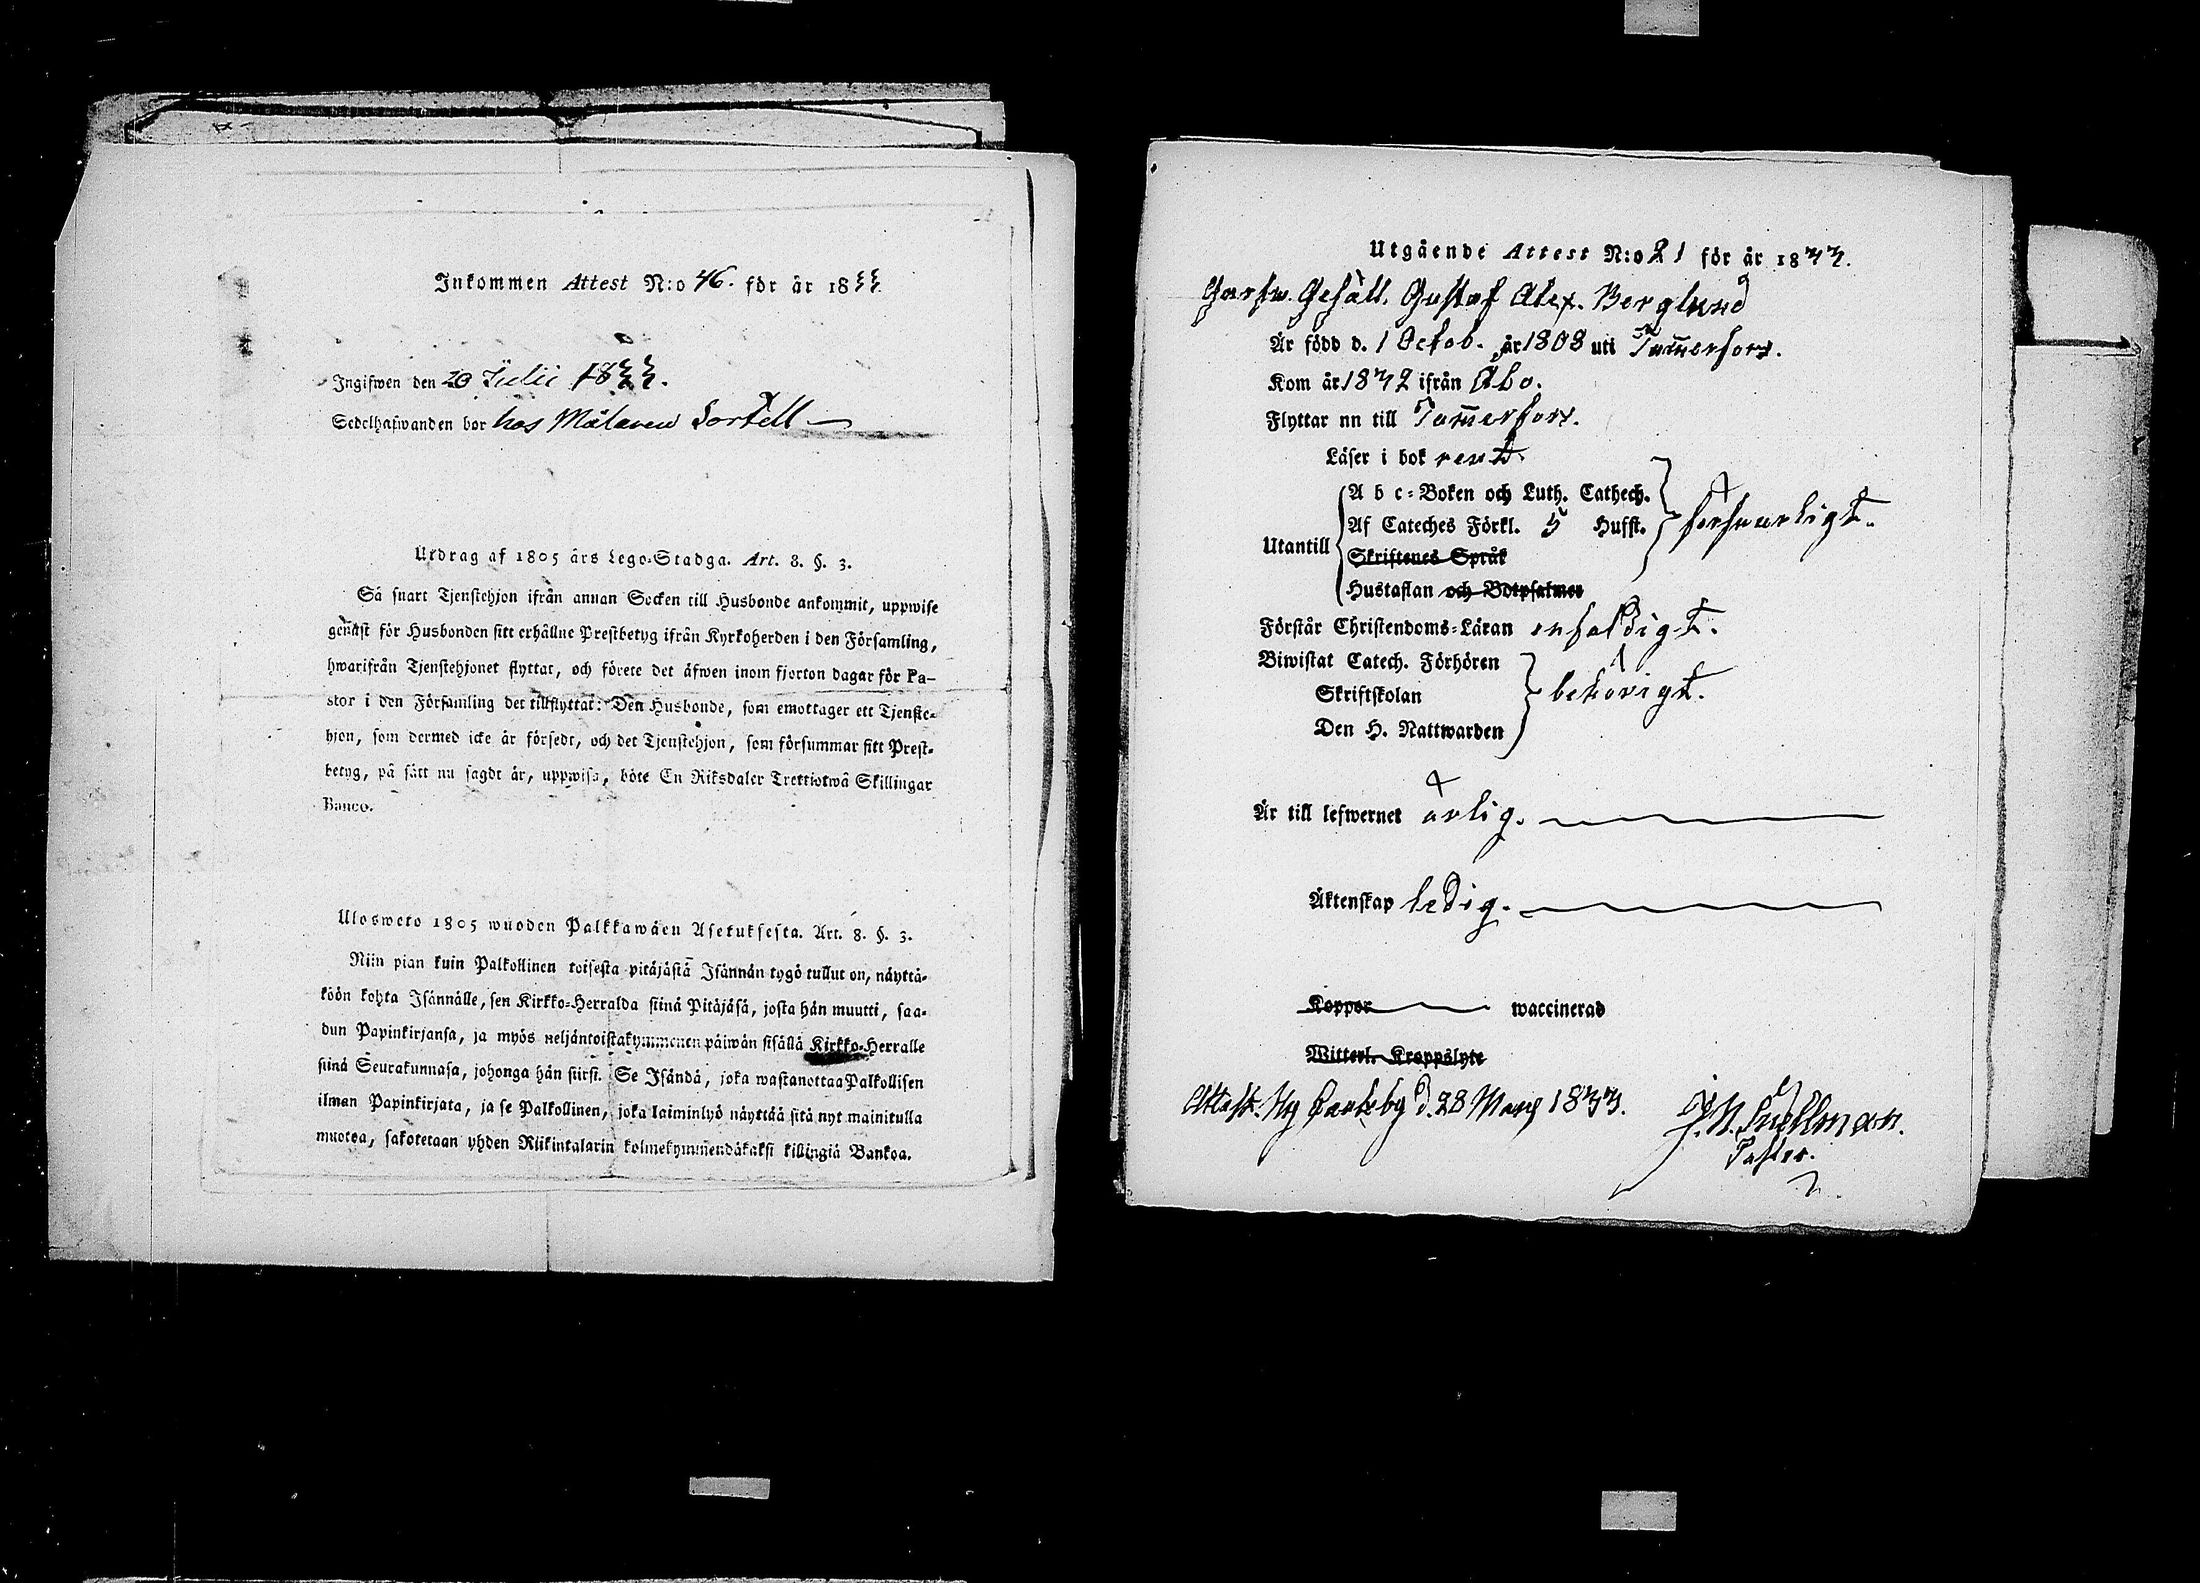 Inkommen Attest N:o 46. för år 1833
Ingifwen den 20 Julii 1833.
Sedelhafwanden bor hos Målaren Lortell
Utdrag af 1805 års Lego-Stadga. Art. 8. §. 3.
Så snart Tjenstehjon ifrån annan Socken till Husbonde ankommit, uppwise
genast för Husbonden sitt erhållne Prestbetyg ifrån Kyrkoherden i den Församling,
hwarifrån Tjenstehjonet flyttat, och förete det äfwen inom fjorton dagar för Pa-
stor i den Församling det tillflyttat: Den Husbonde, som emottager ett Tjenste-
hjon, som dermed icke är försedt, och det Tjenstehjon, som försummar sitt Prest-
betyg, på sätt nu sagdt är, uppwisa, böte En Riksdaler Trettiotwå Skillingar
Banco.
Ulosweto 1805 wuoden Palkkawäen Asetuksesta. Art. 8. §. 3.
Niin pian kuin Palkollinen toisesta pitäjästä Isännän tygö tullut on, näyttä-
köön kohta Isännälle, sen Kirkko-Herralda siinä Pitäjäsä, josta hän muutti, saa-
dun Papinkirjansa, ja myös neljäntoistakymmenen päiwän sisällä Kirkko-Herralle
siinä Seurakunnasa, johonga hän siirsi. Se Isändä, joka wastanottaa Palkollisen
ilman Papinkirjata, ja se Palkollinen, joka laiminlyö näyttää sitä nyt mainitulla
muotoa, sakotetaan yhden Riikintalarin kolmekymmendäkaksi killingiä Bankoa.
Utgående Attest N:o 21 för år 1833.
Garfw. Gesäll. Gustaf Alex. Berglund
Är född d. 1 Octob. år 1808 uti Tam̅erfors.
Kom år 1832 ifrån Åbo.
Flyttar nn till Tam̅erfors.
Läser i bok rent
Utantill
A b c-Boken och Luth. Cathech.
Af Cateches Förkl. 5 Hufst.
Skriftenes Språk
Hustaflan och Botpsalmer
försvarligt.
Förstår Christendoms-Läran enfaldigt.
Biwistat Catech. Förhören
Skriftskolan
Den H. Nattwarden
behörigt.
Är till lefwernet ärlig.
Äktenskap ledig.
Koppor waccinerad
Witterl. Kroppslyte
Attest. Ny Carleby d. 28 Mars 1833.
J. N. Snellman.
Pastor.